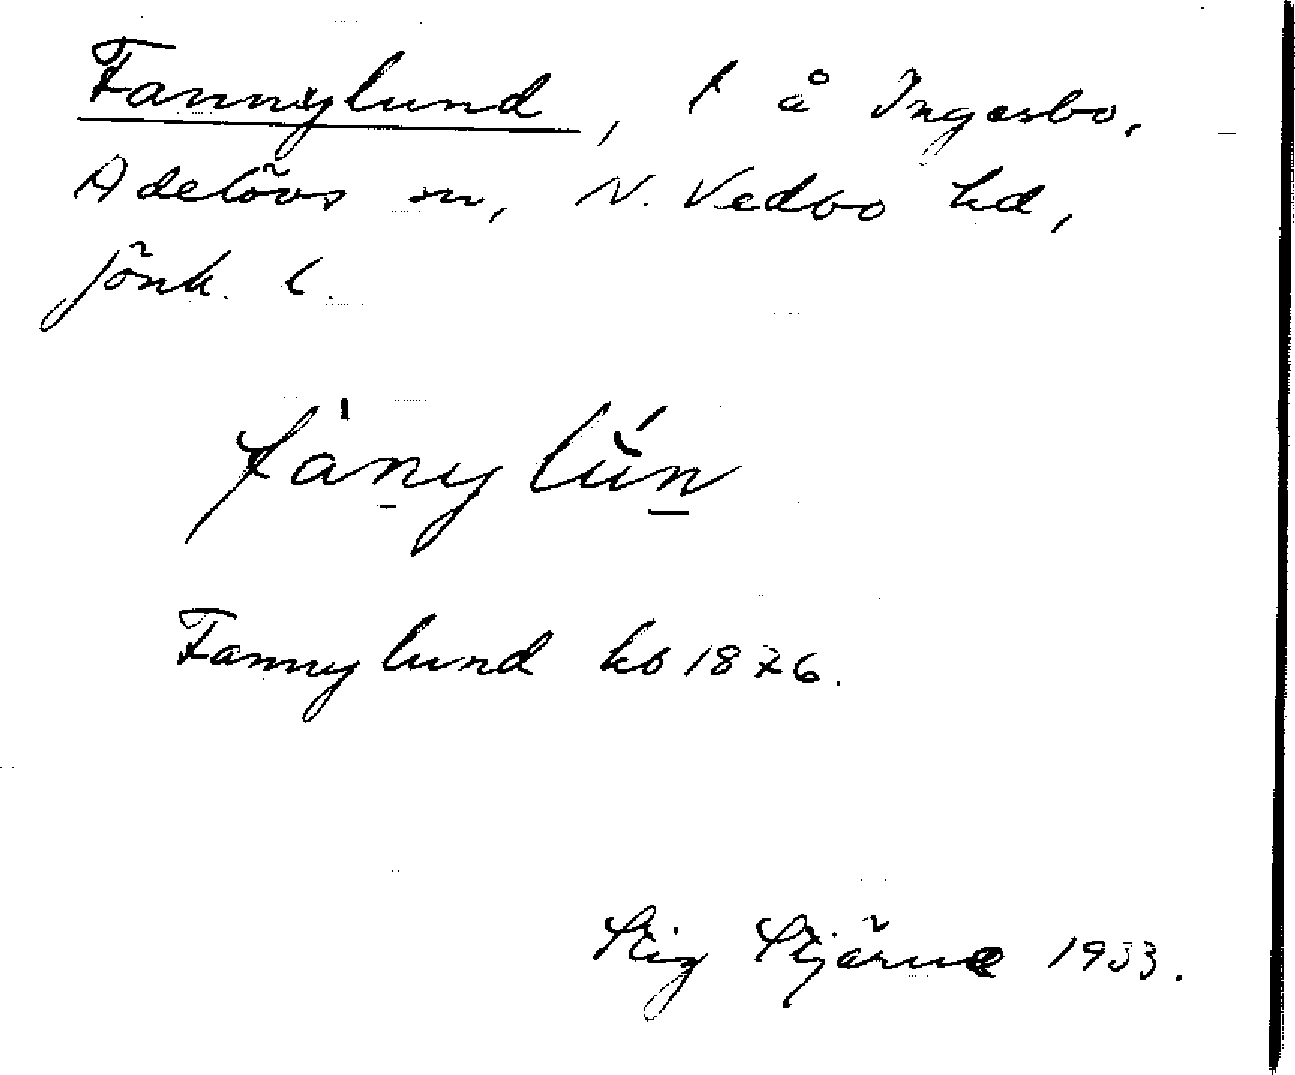 Fannylund, l å Ingarbo,
Adelövs sn, N. Vedbo hd,
Jönk. l.
fànylún
Fannylund kb 1876.
Stig Stjärne 1933.